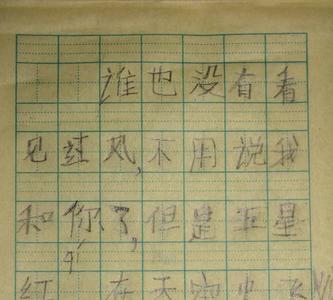 谁也没有看
见过风,不用说我
和你了,但是五星
红qí在天空